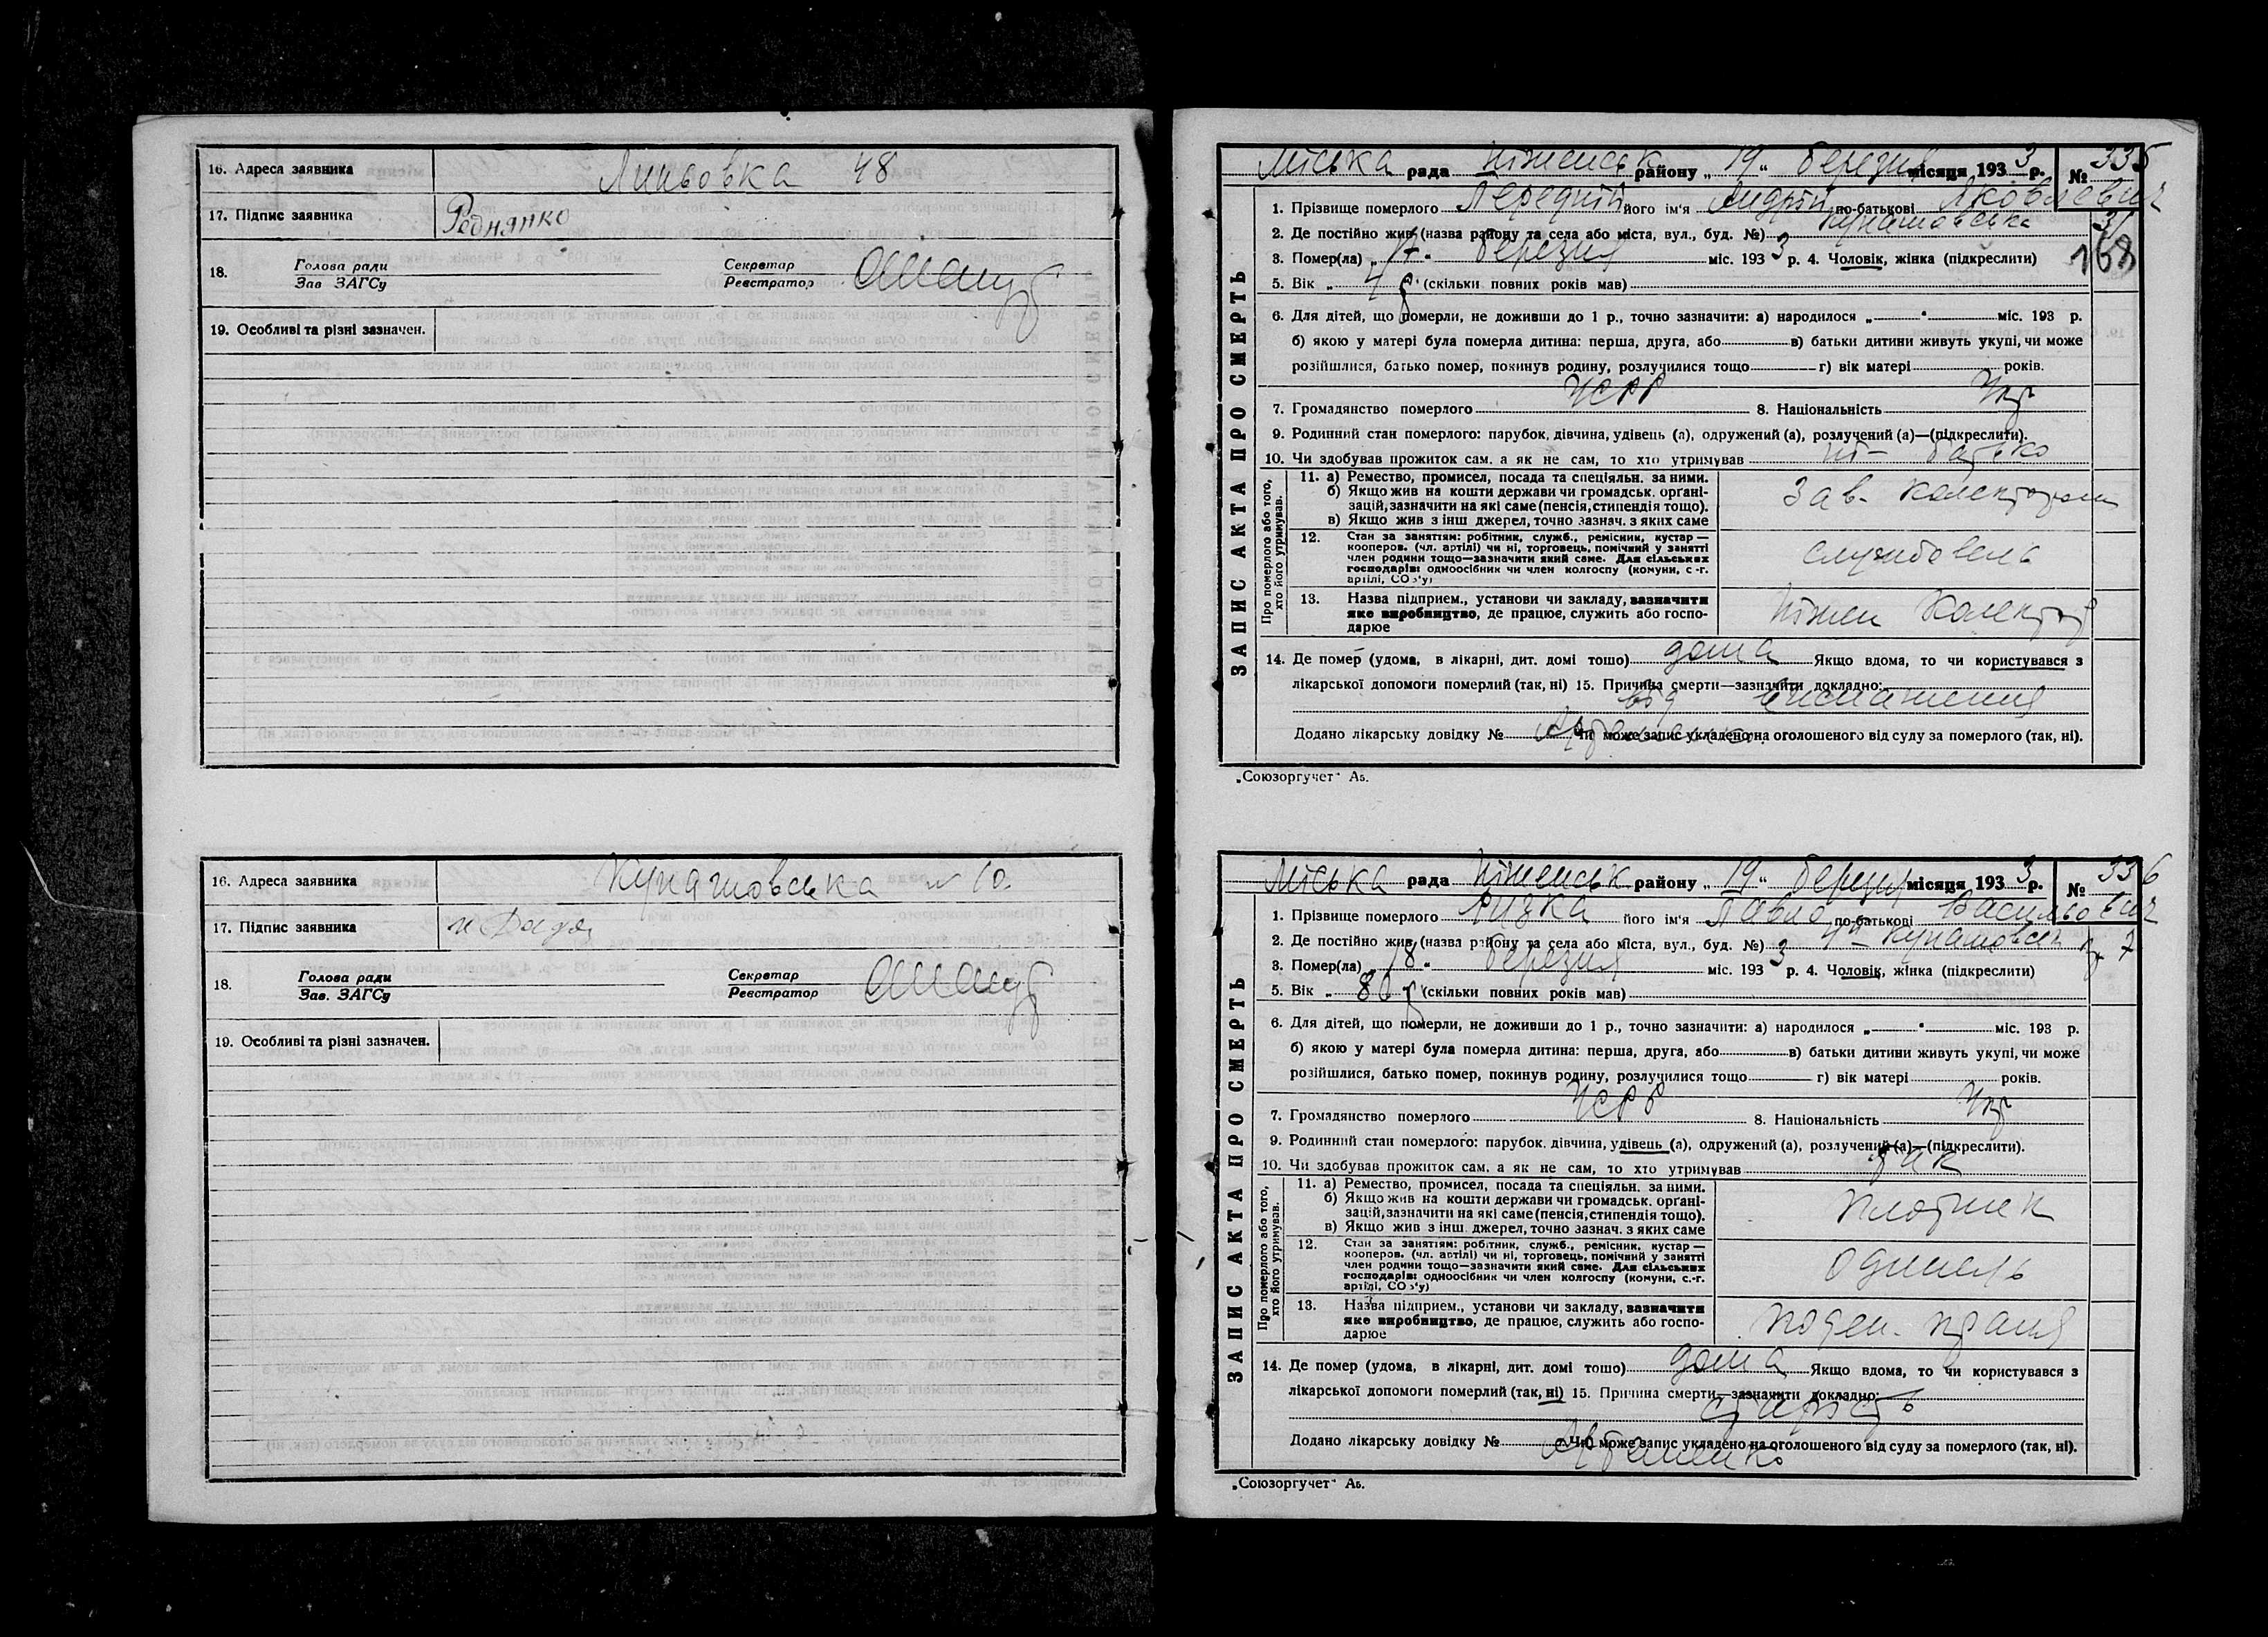 16. Адреса заявника Липьовка 48
17. Підпис заявника Реднянко
18. Голова ради Секретар
Зав ЗАГСу Реєстратор
19. Особливі та різні зазначен.
16. Адреса заявника Кунашовська № 10
17. Підпис заявника
18. Голова ради Секретар
Зав. ЗАГСу Реєстратор
19. Особливі та різні зазначен.
ЗАПИС АКТА ПРО СМЕРТЬ
Міська рада Ніженськ району „ 19 “ березня місяця 193 3 р. № 335
1. Прізвище померлого Передній його ім'я Андрій по-батькові Яковлевич
2. Де постійно жив (назва району та села або міста, вул., буд. №) Кунашовська
3. Помер(ла) „ 17 “ березня міс. 193 3 р. 4. Чоловік, жінка (підкреслити)
5. Вік „ (скільки повних років мав)
6. Для дітей, що померли, не доживши до 1 р., точно зазначити: а) народилося „ “ міс. 193 р.
б) якою у матері була померла дитина: перша, друга, або в) батьки дитини живуть укупі, чи може
розійшлися, батько помер, покинув родину, розлучилися тощо г) вік матері років.
7. Громадянство померлого УСРР 8. Національність Укр
9. Родинний стан померлого: парубок, дівчина, удівець (а), одружений (а), розлучений (а)—(підкреслити).
10. Чи здобував прожиток сам, а як не сам, то хто утримував ні – батько
Про померлого або того, хто його утримував.
11. а) Ремество, промисел, посада та спеціяльн. за ними.
б) Якщо жив на кошти держави чи громадськ. орґані-
зацій, зазначити на які саме (пенсія, стипендія тощо).
в) Якщо жив з інш джерел, точно зазнач. з яких саме
Зав. колектором
12. Стан за заняттям: робітник, служб., ремісник, кустар —
кооперов. (чл. артілі) чи ні, торговець, помічний у занятті
член родини тощо—зазначити який саме. Для сільських
господарів: одноосібник чи член колгоспу (комуни, с.-г.
артілі, СОЗ'у)
службовець
13. Назва підприєм., установи чи закладу, зазначити
яке виробництво, де працює, служить або госпо-
дарює
Ніжен Колектор
14. Де помер (удома, в лікарні, дит. домі тощо) дома Якщо вдома, то чи користувався з
лікарської допомоги померлий (так, ні) 15. Причина смерти—зазначити докладно:
від виснаження
Додано лікарську довідку № Чи може запис укладено на оголошеного від суду за померлого (так, ні).
„Союзоргучет“ Аб.
ЗАПИС АКТА ПРО СМЕРТЬ
Міська рада Ніженськ району „ 19 “ березня місяця 193 3 р. № 336
1. Прізвище померлого його ім'я Павло по-батькові Васильович
2. Де постійно жив (назва району та села або міста, вул., буд. №) Кунашовськ 7
3. Помер(ла) „ 18 “ березня міс. 193 3 р. 4. Чоловік, жінка (підкреслити)
5. Вік „ 80 р “ (скільки повних років мав)
6. Для дітей, що померли, не доживши до 1 р., точно зазначити: а) народилося „ “ міс. 193 р.
б) якою у матері була померла дитина: перша, друга, або в) батьки дитини живуть укупі, чи може
розійшлися, батько помер, покинув родину, розлучилися тощо г) вік матері років.
7. Громадянство померлого УСРР 8. Національність Укр
9. Родинний стан померлого: парубок, дівчина, удівець (а), одружений (а), розлучений (а)—(підкреслити).
10. Чи здобував прожиток сам, а як не сам, то хто утримував так
Про померлого або того, хто його утримував.
11. а) Ремество, промисел, посада та спеціяльн. за ними.
б) Якщо жив на кошти держави чи громадськ. орґані-
зацій, зазначити на які саме (пенсія, стипендія тощо).
в) Якщо жив з інш джерел, точно зазнач. з яких саме
плотник
12. Стан за заняттям: робітник, служб., ремісник, кустар —
кооперов. (чл. артілі) чи ні, торговець, помічний у занятті
член родини тощо—зазначити який саме. Для сільських
господарів: одноосібник чи член колгоспу (комуни, с.-г.
артілі, СОЗ'у)
одинець
13. Назва підприєм., установи чи закладу, зазначити
яке виробництво, де працює, служить або госпо-
дарює
поден. праця
14. Де помер (удома, в лікарні, дит. домі тощо) дома Якщо вдома, то чи користувався з
лікарської допомоги померлий (так, ні) 15. Причина смерти—зазначити докладно:
старість
Додано лікарську довідку № Чи може запис укладено на оголошеного від суду за померлого (так, ні).
„Союзоргучет“ Аб.